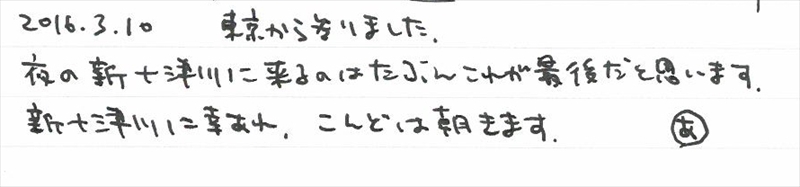 2016.3.10 東京から参りました.
夜の新十津川に来るのはたぶんこれが最後だと思います.
新十津川に幸あれ. こんどは朝きます. あ